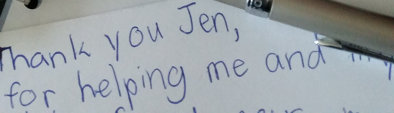 Thank you Jen,
for helping me and